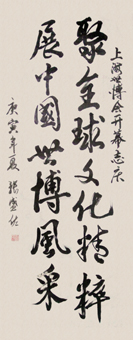 上海世博会开幕志庆
聚全球文化精粹
展中國世博風采
庚寅年夏